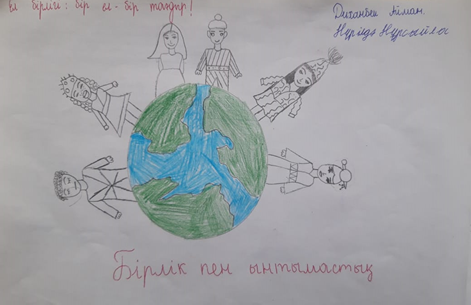 бірлігі: бір ел - бір тағдыр!
Диханбек Айман
Нұрилда Нұрсейла
Бірлік пен ынтымастық